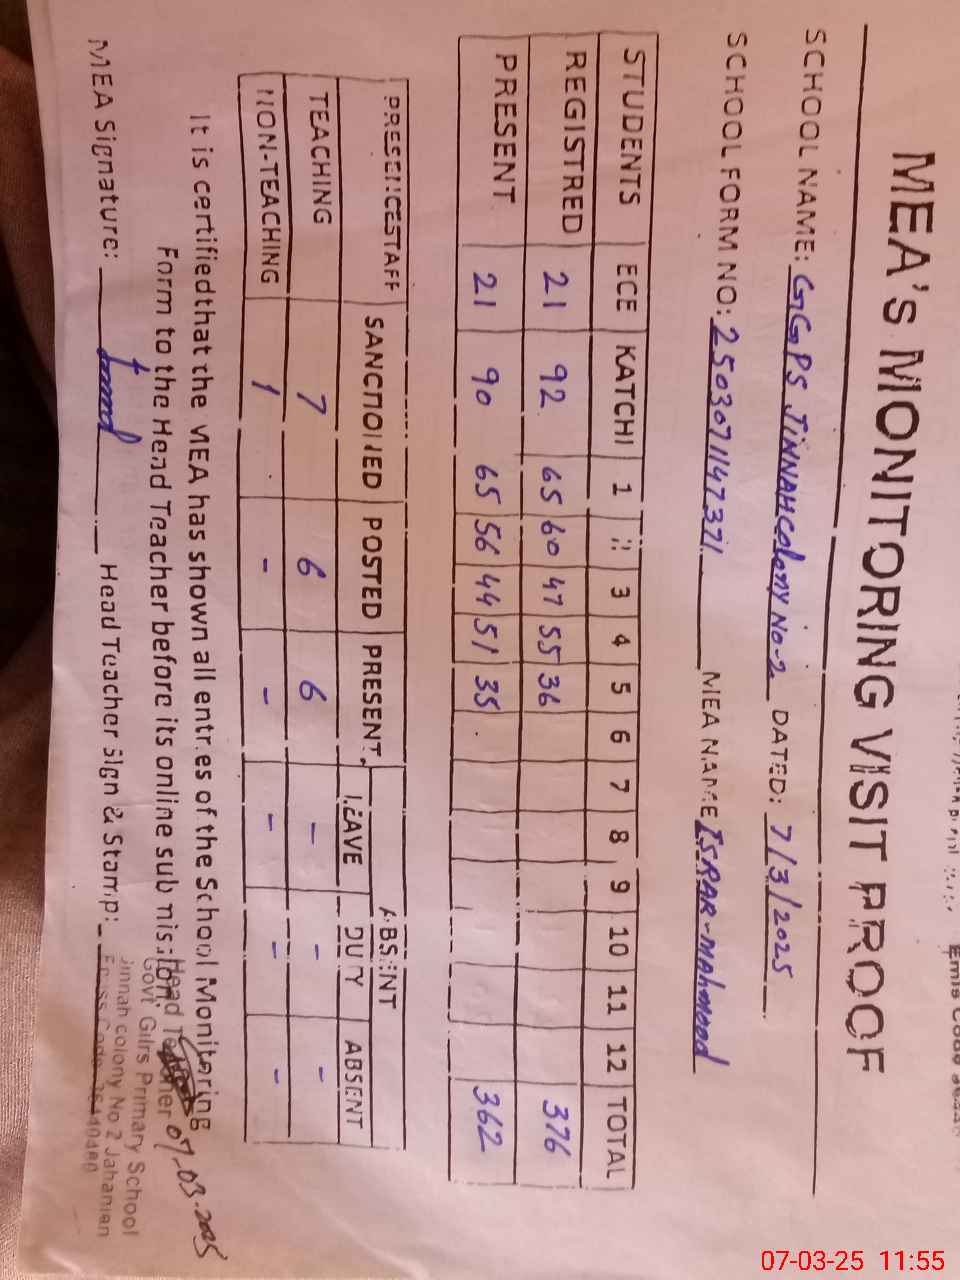 MEA'S MONITORING VISIT PROOF
SCHOOL NAME: GGPS JINNAH Colony No-2 DATED: 7/3/2025
SCHOOL FORM NO: 2503071147371 MEA NAME ISRAR-mahmood
STUDENTS ECE KATCHI 1 2 3 4 5 6 7 8 9 10 11 12 TOTAL
REGISTRED 21 92 65 60 47 55 36 376
PRESENT 21 90 65 56 44 51 35 362
PRESENCE STAFF SANCTIONED POSTED PRESENT ABSENT
LEAVE DUTY ABSENT
TEACHING 7 6 6 - - -
NON-TEACHING 1 - - - - -
It is certified that the MEA has shown all entries of the School Monitoring
Form to the Head Teacher before its online submission.
MEA Signature: Head Teacher Sign & Stamp:
Head Teacher 07-03-2025
Govt Gilrs Primary School
Jinnah colony No 2 Jahanian
07-03-25 11:55